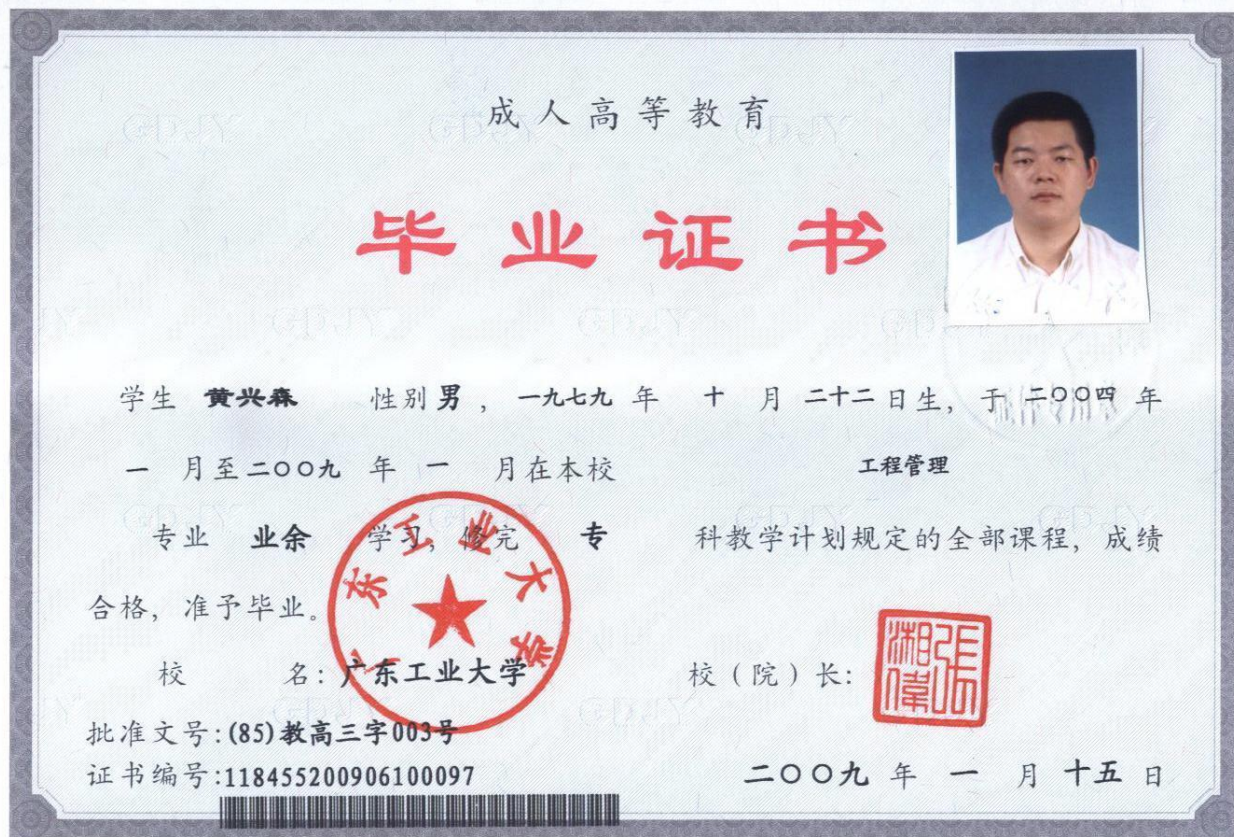 成人高等教育
毕业证书
学生 黄兴森 性别 男 ，一九七九 年 十 月 二十二 日生，于 二〇〇四 年
一 月至 二〇〇九 年 一 月在本校 工程管理
专业 业余 学习，修完 专 科教学计划规定的全部课程，成绩
合格，准予毕业。
广东工业大学
校 名：广东工业大学 校（院）长：
張湘偉
批准文号:(85)教高三字003号
证书编号:118455200906100097
二〇〇九 年 一 月 十五 日